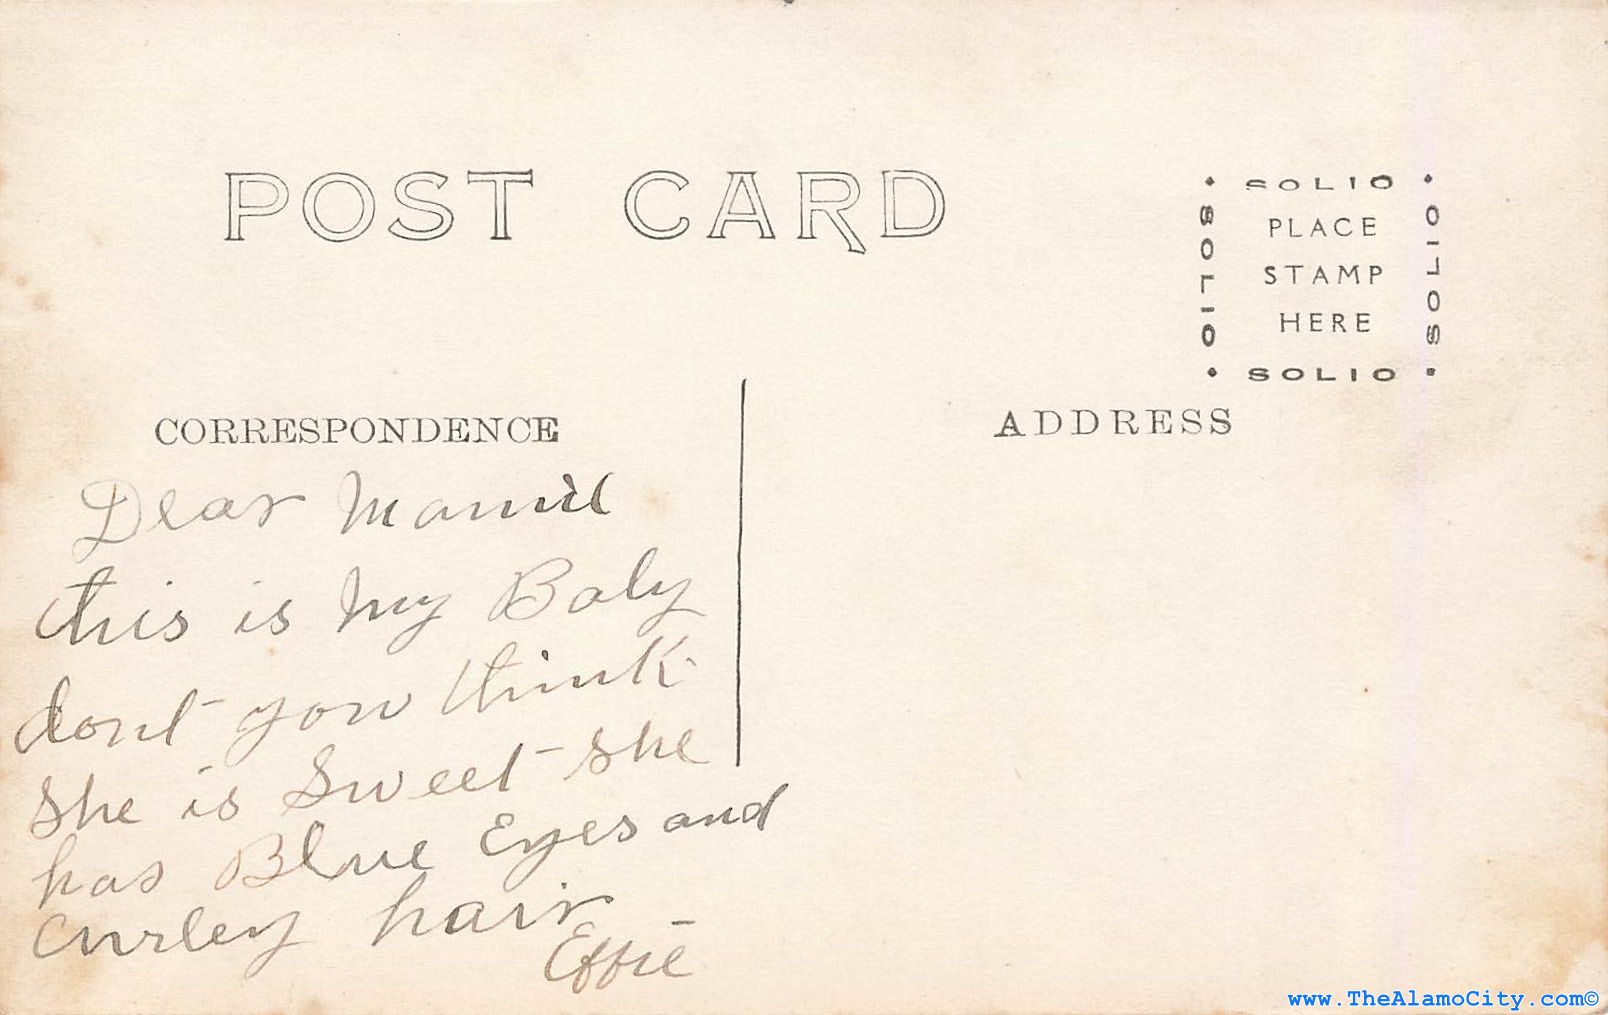 POST CARD
SOLIO
SOLIO
PLACE
STAMP
HERE
SOLIO
SOLIO
CORRESPONDENCE
ADDRESS
Dear Mamie
this is my Baby
dont you think
She is Sweet she
has Blue Eyes and
Curley hair
Effie
www.TheAlamoCity.com©